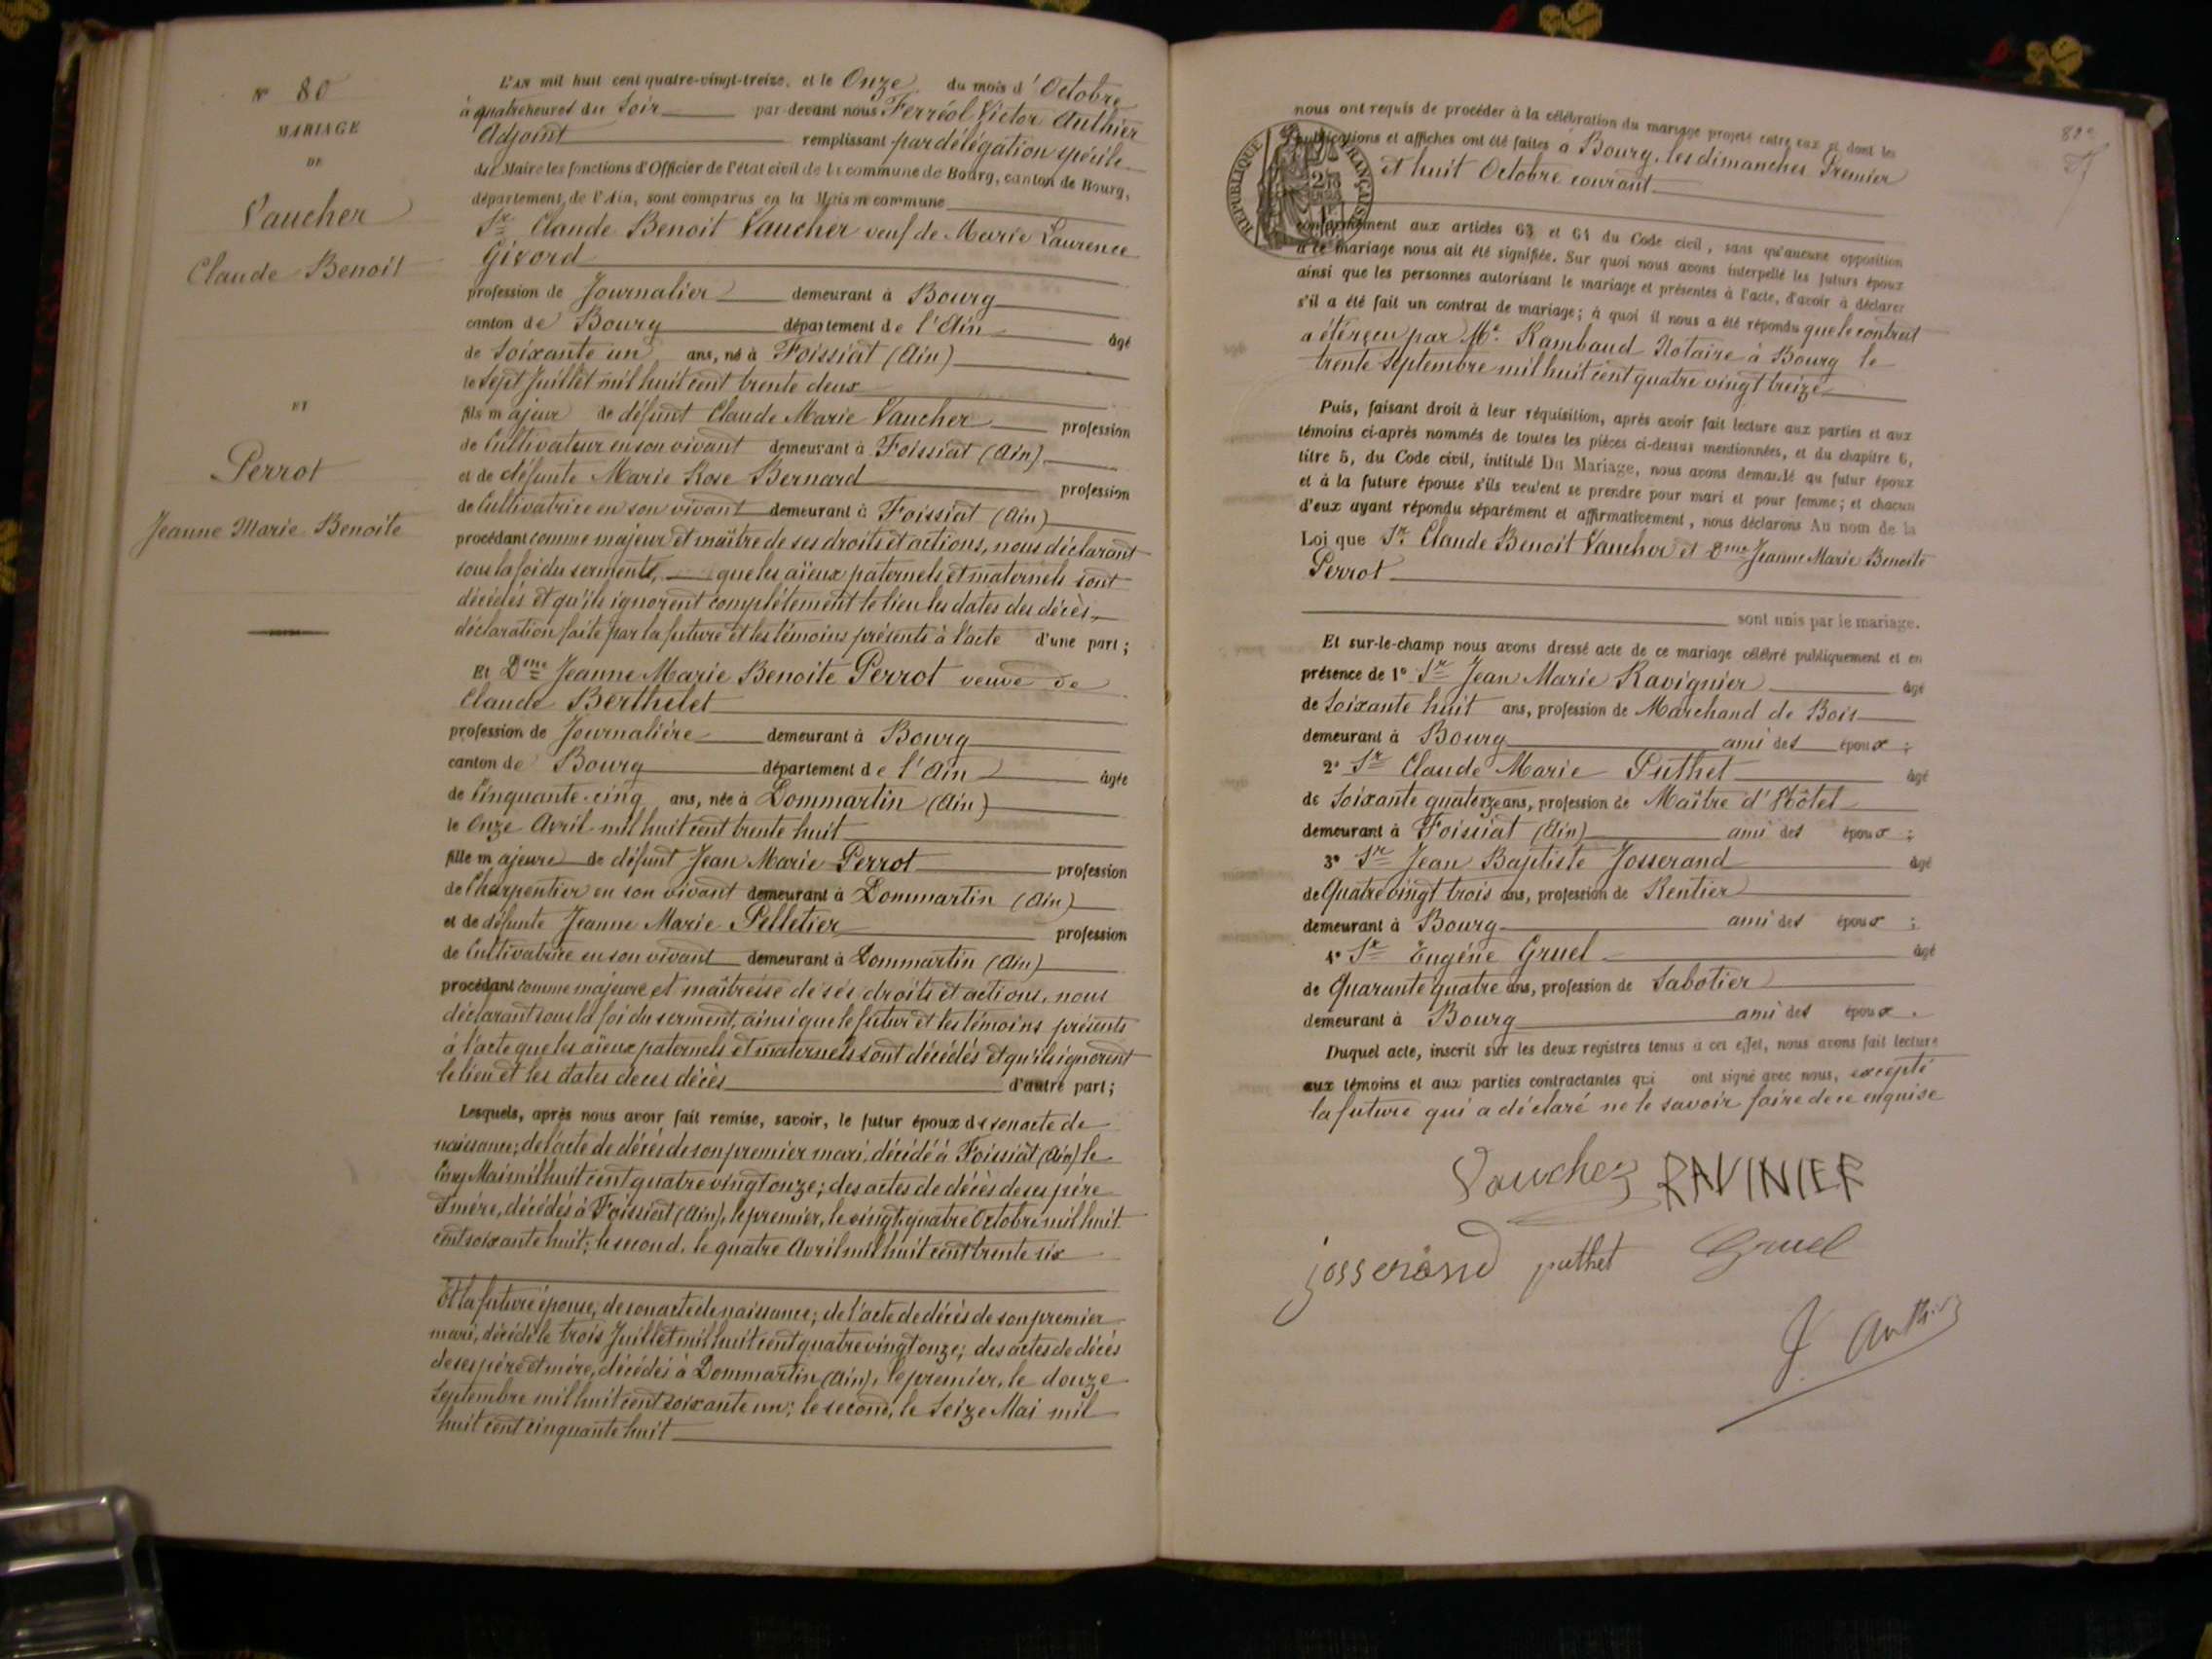 N° 80
MARIAGE
DE
Vaucher
Claude Benoit
ET
Perrot
Jeanne Marie Benoite
L'AN mil huit cent quatre-vingt-treize, et le Onze du mois d'Octobre
à quatre heures du Soir par devant nous Ferréol Victor Authier
Adjoint remplissant par délégation spécile
du Maire les fonctions d'Officier de l'état civil de la commune de Bourg, canton de Bourg,
département de l'Ain, sont comparus en la Maison commune
Sr Claude Benoit Vaucher veuf de Marie Laurence
Givord
profession de Journalier demeurant à Bourg
canton de Bourg département de l'Ain âgé
de Soixante un ans, né à Foissiat (Ain)
le Sept Juillet mil huit cent trente deux
fils majeur de défunt Claude Marie Vaucher profession
de Cultivateur en son vivant demeurant à Foissiat (Ain)
et de défunte Marie Rose Bernard profession
de Cultivatrice en son vivant demeurant à Foissiat (Ain)
procédant comme majeur et maître de ses droits et actions, nous déclarant
sous la foi du serment, que les aïeux paternels et maternels sont
décédés et qu'ils ignorent complètement le lieu les dates des décès,
déclaration faite par la future et les témoins présents à l'acte d'une part;
Et Dme Jeanne Marie Benoite Perrot veuve de
Claude Berthelet
profession de Journalière demeurant à Bourg
canton de Bourg département de l'Ain âgée
de Cinquante-cinq ans, née à Dommartin (Ain)
le Onze Avril mil huit cent trente huit
fille majeure de défunt Jean Marie Perrot profession
de Charpentier en son vivant demeurant à Dommartin (Ain)
et de défunte Jeanne Marie Pelletier profession
de Cultivatrice en son vivant demeurant à Dommartin (Ain)
procédant comme majeure et maîtresse de ses droits et actions, nous
déclarant sous la foi du serment, ainsi que le futur et les témoins présents
à l'acte que les aïeux paternels et maternels sont décédés et qu'ils ignorent
le lieu et les dates de ces décès d'autre part;
Lesquels, après nous avoir fait remise, savoir, le futur époux de son acte de
naissance; de l'acte de décès de son premier mari, décédé à Foissiat (Ain) le
Cinq Mai mil huit cent quatre vingt onze; des actes de décès de ses père
et mère, décédés à Foissiat (Ain), le premier, le vingt quatre Octobre mil huit
cent soixante huit; le second, le quatre Avril mil huit cent trente six
Et la future épouse, de son acte de naissance; de l'acte de décès de son premier
mari, décédé le trois Juillet mil huit cent quatre vingt onze; des actes de décès
de ses père et mère, décédés à Dommartin (Ain), le premier, le douze
Septembre mil huit cent soixante un; le second, le Seize Mai mil
huit cent cinquante huit
82e
nous ont requis de procéder à la célébration du mariage projeté entre eux et dont les
publications et affiches ont été faites à Bourg, les dimanches Premier
et huit Octobre courant
RÉPUBLIQUE FRANÇAISE
conformément aux articles 63 et 64 du Code civil, sans qu'aucune opposition
à ce mariage nous ait été signifiée. Sur quoi nous avons interpellé les futurs époux
ainsi que les personnes autorisant le mariage et présentes à l'acte, d'avoir à déclarer
s'il a été fait un contrat de mariage; à quoi il nous a été répondu que le contrat
a été reçu par Me Rambaud Notaire à Bourg le
trente Septembre mil huit cent quatre vingt treize
Puis, faisant droit à leur réquisition, après avoir fait lecture aux parties et aux
témoins ci-après nommés de toutes les pièces ci-dessus mentionnées, et du chapitre 6,
titre 5, du Code civil, intitulé Du Mariage, nous avons demandé au futur époux
et à la future épouse s'ils veulent se prendre pour mari et pour femme; et chacun
d'eux ayant répondu séparément et affirmativement, nous déclarons Au nom de la
Loi que Sr Claude Benoit Vaucher et Dme Jeanne Marie Benoite
Perrot
sont unis par le mariage.
Et sur-le-champ nous avons dressé acte de ce mariage célébré publiquement et en
présence de 1° Sr Jean Marie Ravignier âgé
de Soixante huit ans, profession de Marchand de Bois
demeurant à Bourg ami des époux;
2° Sr Claude Marie Puthet âgé
de Soixante quatorze ans, profession de Maître d'Hôtel
demeurant à Foissiat (Ain) ami des époux;
3° Sr Jean Baptiste Josserand âgé
de Quatre vingt trois ans, profession de Rentier
demeurant à Bourg ami des époux;
4° Sr Eugène Gruel âgé
de Quarante quatre ans, profession de Sabotier
demeurant à Bourg ami des époux.
Duquel acte, inscrit sur les deux registres tenus à cet effet, nous avons fait lecture
aux témoins et aux parties contractantes qui ont signé avec nous, excepté
la future qui a déclaré ne le savoir faire de ce enquise
Vaucher RAVINIER
josserand puthet Gruel